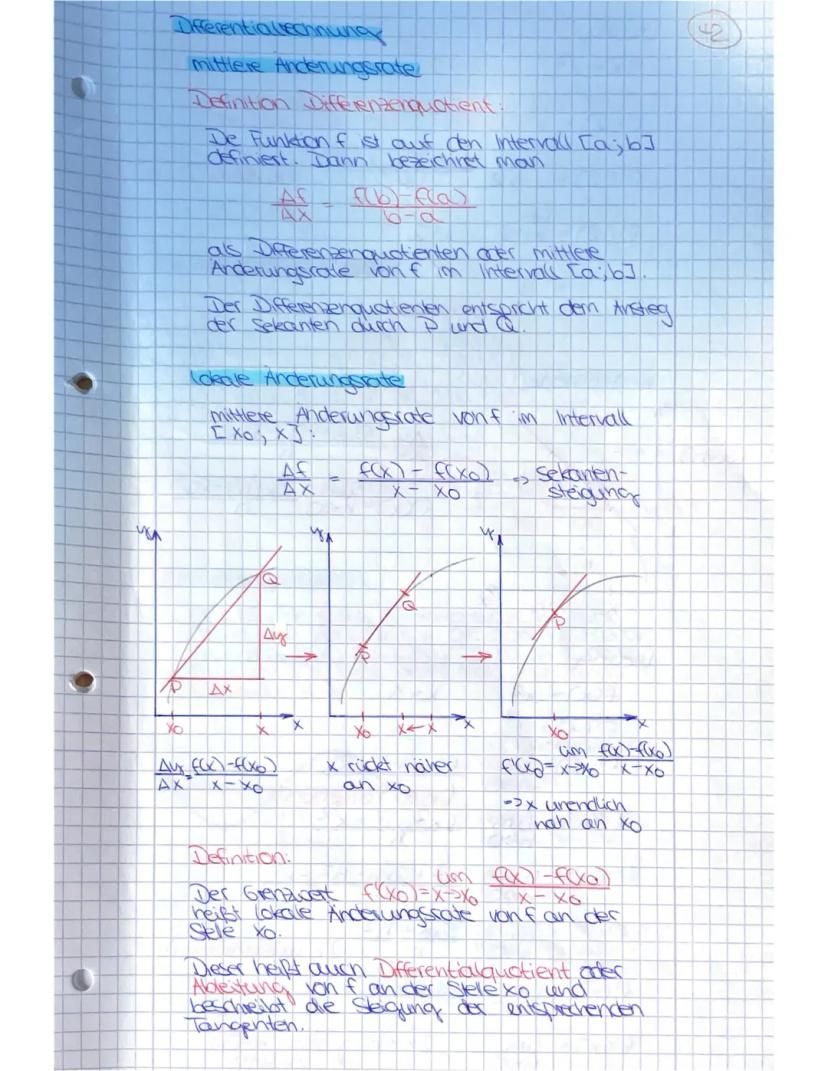 Differentialrechnung
42
mittlere Änderungsrate
Definition Differenzenquotient:
De Funktion f ist auf den Intervall [a;b]
definiert. Dann bezeichnet man
Δf/Δx = f(b)-f(a)/b-a
als Differenzenquotienten oder mittlere
Änderungsrate von f im Intervall [a;b].
Der Differenzenquotienten entspricht dem Anstieg
der Sekanten durch P und Q.
lokale Änderungsrate
mittlere Änderungsrate von f im Intervall
[x0; x]:
Δf/Δx = f(x) - f(x0)/x - x0 -> Sekanten-
steigung
y y y
Q Q P
P Δy P
Δx
x0 x x x0 x<-x x x0 x
Δy/Δx = f(x)-f(x0)/x-x0
x rückt näher
an x0
f'(x0) = lim x->x0 f(x)-f(x0)/x-x0
=> x unendlich
nah an x0
Definition:
Der Grenzwert f'(x0) = lim x->x0 f(x)-f(x0)/x-x0
heißt lokale Änderungsrate von f an der
Stelle x0.
Dieser heißt auch Differentialquotient oder
Ableitung von f an der Stelle x0 und
beschreibt die Steigung der entsprechenden
Tangenten.